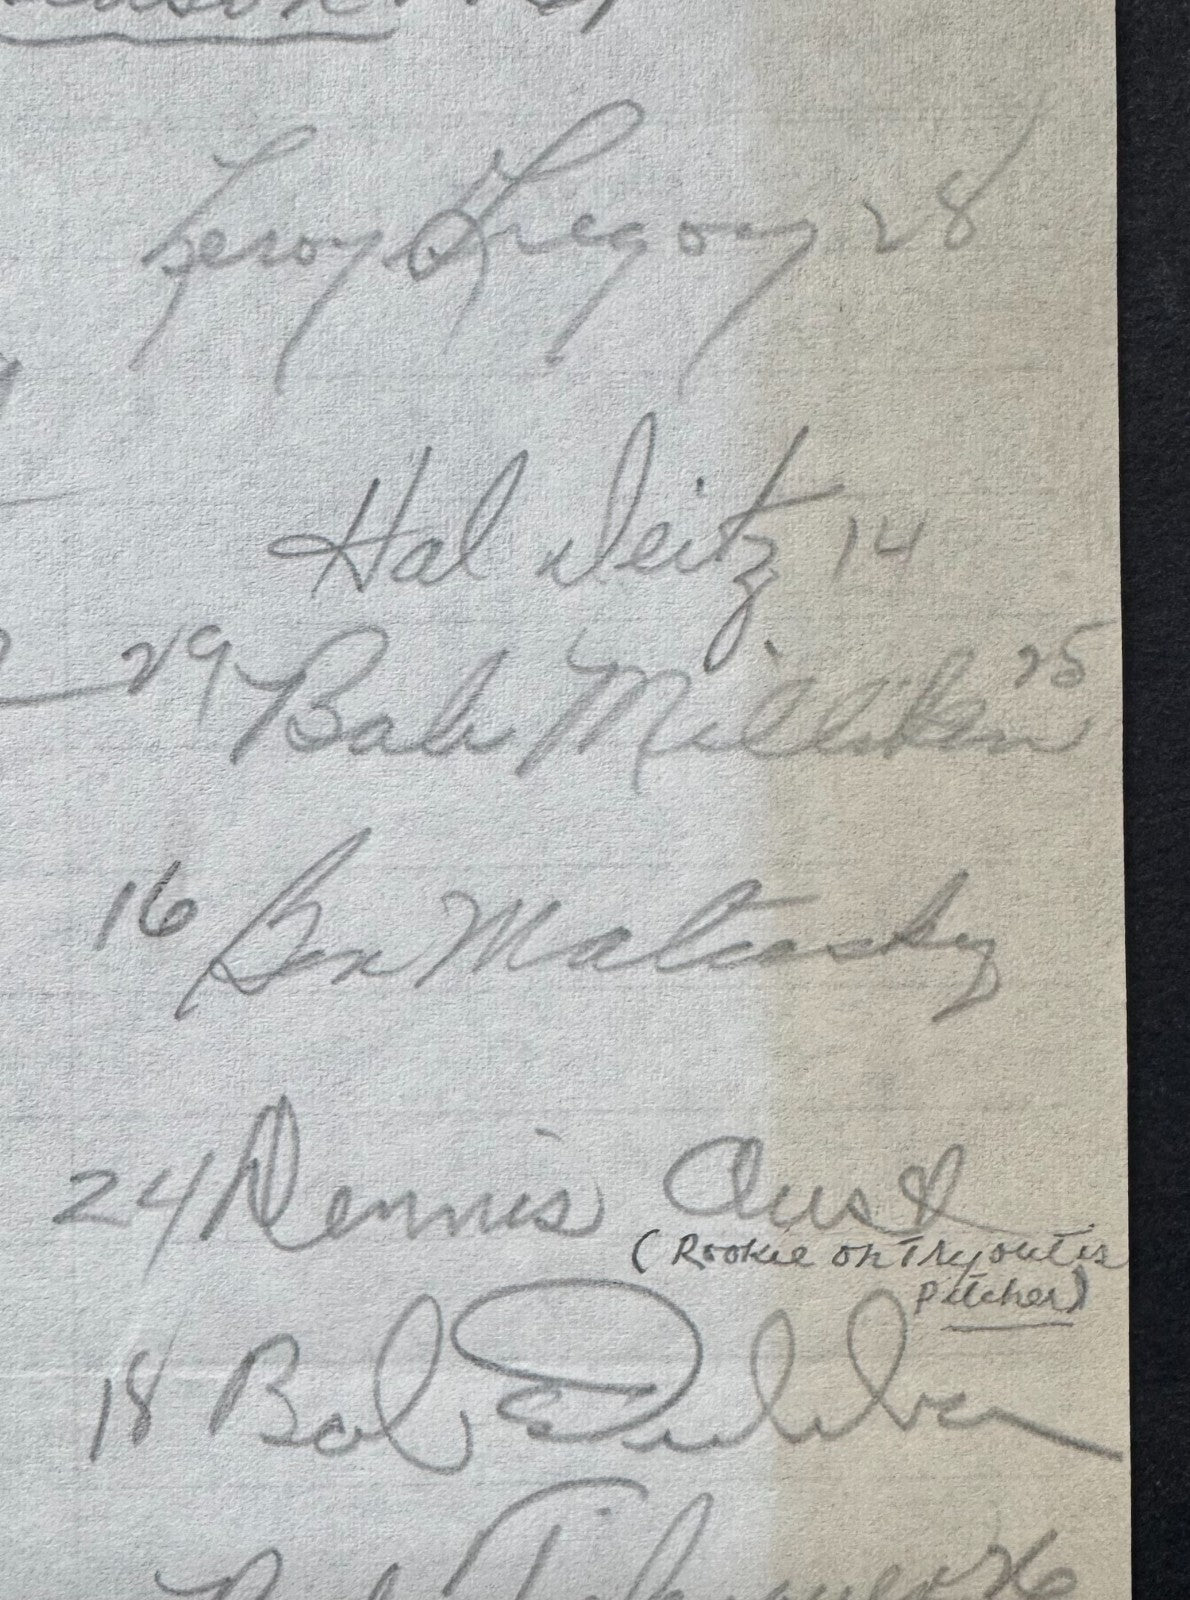 Leroy Gregory 28
Hal Deitz 14
29 Bob Milliken 25
16 Ben Mateosky
24 Dennis Aust
(Rookie on Tryout is
pitcher)
18 Bob
Bob 26